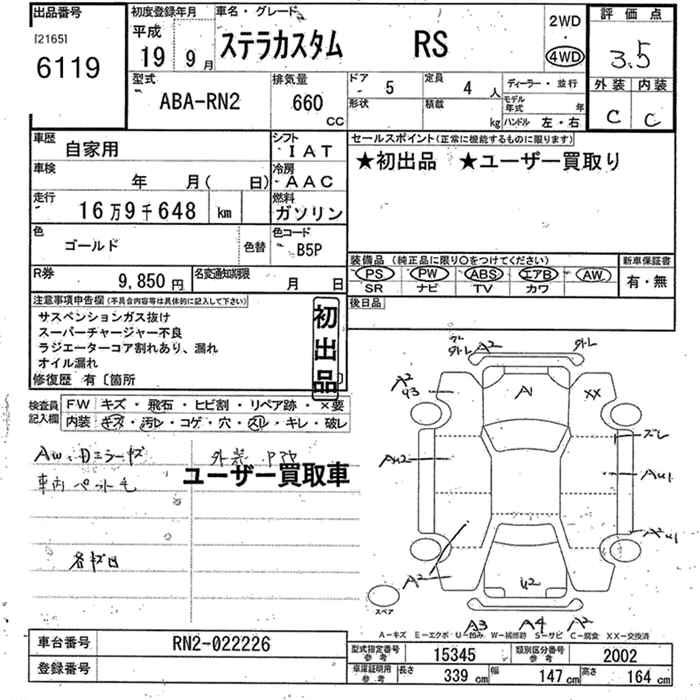 出品番号 初度登録年月 車名・グレード 2WD 評価点
[2165] 平成 ステラカスタム RS 4WD 3.5
6119 19 9月
型式 排気量 ドア 5 定員 4人 ディーラー・並行 外装 内装
ABA-RN2 660 CC 形状 積載 kg モデル年式 年 C C
ハンドル 左・右
車歴 自家用 シフト IAT セールスポイント(正常に機能するものに限ります)
車検 年 月( 日) 冷房 AAC ★初出品 ★ユーザー買取り
走行 16万9千648 km 燃料 ガソリン
色 ゴールド 色替 色コード B5P
R券 9,850円 名変通知期限 月 日
装備品(純正品に限り○をつけてください) 新車保証書
PS PW ABS エアB AW 有・無
SR ナビ TV カワ
後日品
注意事項申告欄(不具合内容等は具体的に記入して下さい)
サスペンションガス抜け
スーパーチャージャー不良
ラジエーターコア割れあり、漏れ
オイル漏れ
修復歴 有〔箇所
初出品
検査員記入欄 FW キズ・飛石・ヒビ割・リペア跡・×要
内装 キズ・汚レ・コゲ・穴・スレ・キレ・破レ
ユーザー買取車
A2 A2 A1 XX
U2
A2 A3 A4 A2
スペア
A-キズ E-エクボ U-凹み W-補修跡 S-サビ C-腐食 XX-交換済
車台番号 RN2-022226
登録番号
型式指定番号 参考 15345 類別区分番号 参考 2002
車庫証明用 参考 長さ 339 cm 幅 147 cm 高さ 164 cm